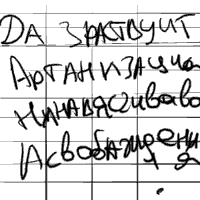 ДА ЗРАСТВУИТ
АРГАНИЗАЦИЯ
НИНАВЯСЧИВАВО
АСВОБАЖДЕНИЯ